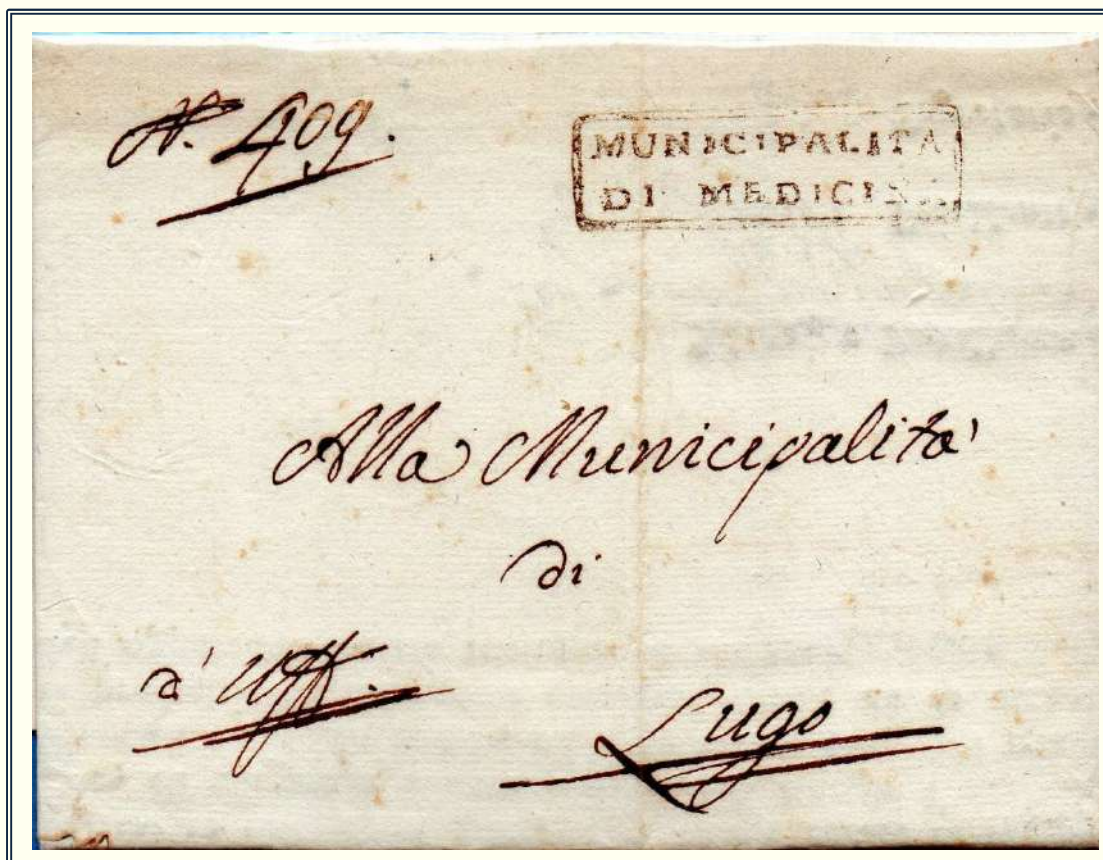 N. 409.
MUNICIPALITA
DI MEDICINA
Alla Municipalità
di
d' Uff.
Lugo